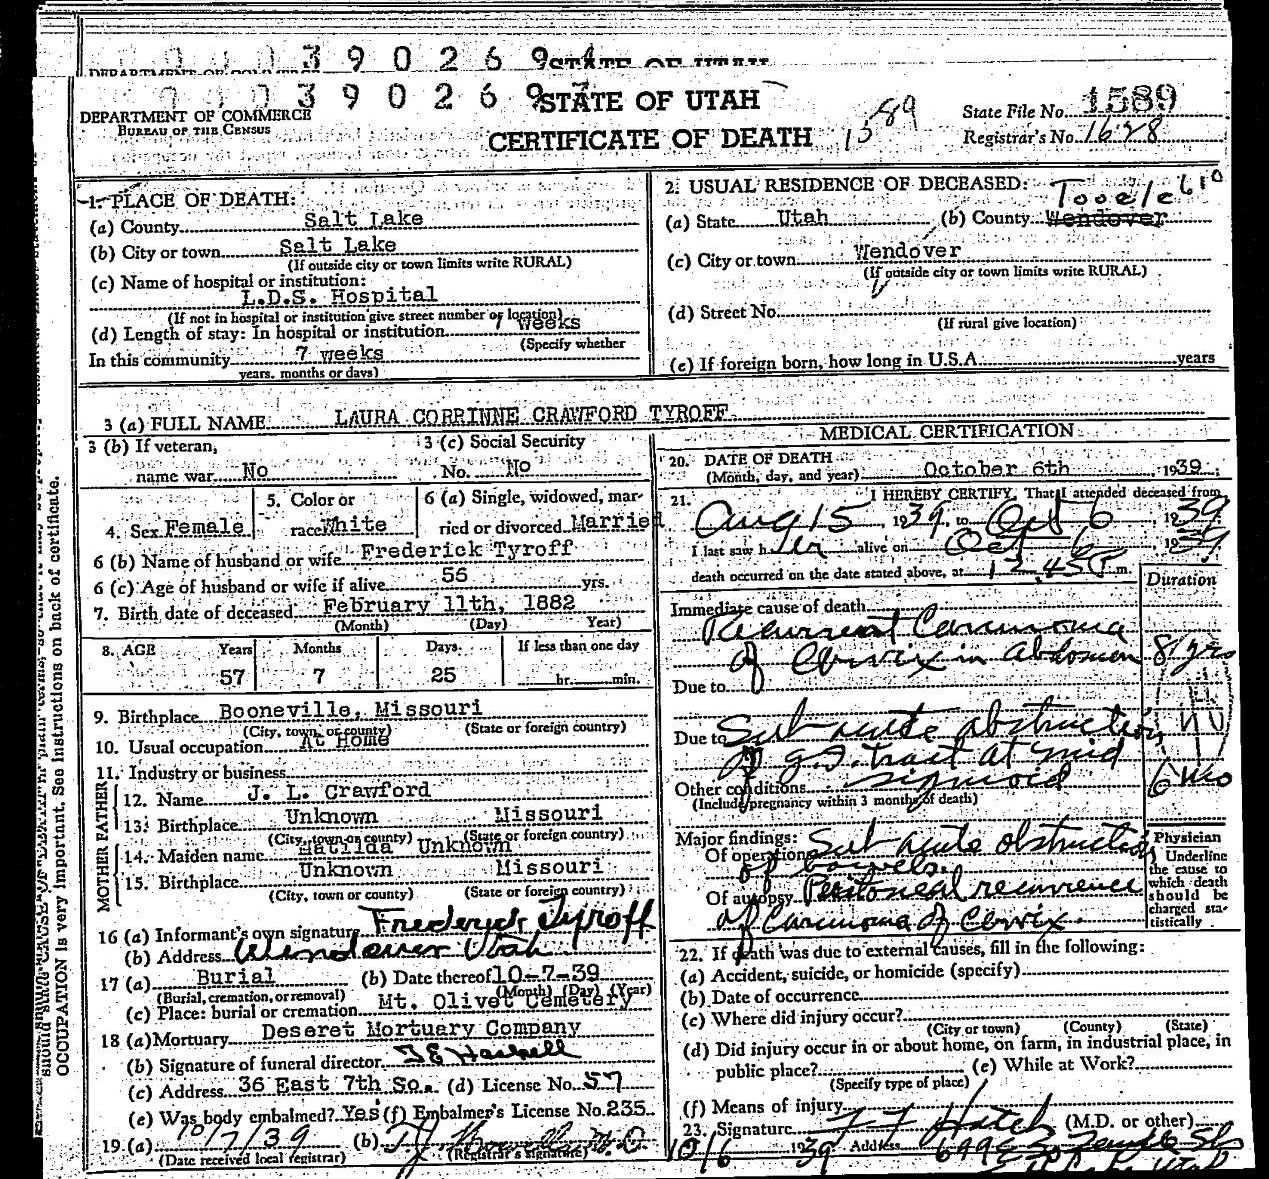 390269 STATE OF UTAH
390269
DEPARTMENT OF COMMERCE
BUREAU OF THE CENSUS
STATE OF UTAH
CERTIFICATE OF DEATH
1589
State File No. 1589
Registrar's No. 1628
1. PLACE OF DEATH:
(a) County Salt Lake
(b) City or town Salt Lake
(If outside city or town limits write RURAL)
(c) Name of hospital or institution:
L.D.S. Hospital
(If not in hospital or institution give street number or location)
(d) Length of stay: In hospital or institution 7 weeks
(Specify whether
In this community 7 weeks
years, months or days)
2. USUAL RESIDENCE OF DECEASED:
Tooele
(a) State Utah (b) County Wendover
(c) City or town Wendover
(If outside city or town limits write RURAL)
(d) Street No.
(If rural give location)
(e) If foreign born, how long in U.S.A. years
3 (a) FULL NAME LAURA CORRINNE CRAWFORD TYROFF
3 (b) If veteran,
name war No
3 (c) Social Security
No. No
4. Sex Female
5. Color or
race White
6 (a) Single, widowed, mar-
ried or divorced Married
6 (b) Name of husband or wife Frederick Tyroff
6 (c) Age of husband or wife if alive 56 yrs.
7. Birth date of deceased February 11th, 1882
(Month) (Day) Year)
8. AGE Years Months Days If less than one day
57 7 25 hr. min.
9. Birthplace Booneville, Missouri
(City, town, or county) (State or foreign country)
10. Usual occupation At Home
11. Industry or business
MOTHER FATHER
12. Name J. L. Crawford
13. Birthplace Unknown Missouri
(City, town or county) (State or foreign country)
14. Maiden name Matilda Unknown
15. Birthplace Unknown Missouri
(City, town or county) (State or foreign country)
16 (a) Informant's own signature Frederick Tyroff
(b) Address Wendover Utah
17 (a) Burial (b) Date thereof 10-7-39
(Burial, cremation, or removal) (Month) (Day) (Year)
(c) Place: burial or cremation Mt. Olivet Cemetery
18 (a) Mortuary Deseret Mortuary Company
(b) Signature of funeral director
(c) Address 36 East 7th So. (d) License No. 57
(e) Was body embalmed? Yes (f) Embalmer's License No. 235
19 (a) 10/7/39 (b)
(Date received local registrar) (Registrar's signature)
MEDICAL CERTIFICATION
20. DATE OF DEATH
(Month, day, and year) October 6th 1939
21. I HEREBY CERTIFY, That I attended deceased from
Aug 15, 1939, to Oct 6 1939
I last saw her alive on Oct 6 1939
death occurred on the date stated above, at 12.45 P m.
Duration
Immediate cause of death
Recurrent Carcinoma
of Cervix in abdomen 8 yrs
Due to
Due to Sub acute obstruction
of G.I. tract at mid
sigmoid 6 mo
Other conditions
(Include pregnancy within 3 months of death)
Major findings:
Of operations Sub acute obstruction
of bowels.
Of autopsy Peritoneal recurrence
of Carcinoma of Cervix.
Physician
Underline
the cause to
which death
should be
charged sta-
tistically
22. If death was due to external causes, fill in the following:
(a) Accident, suicide, or homicide (specify)
(b) Date of occurrence
(c) Where did injury occur?
(City or town) (County) (State)
(d) Did injury occur in or about home, on farm, in industrial place, in
public place? (e) While at Work?
(Specify type of place)
(f) Means of injury
23. Signature Hatch (M.D. or other)
10/6 1939 Address 699 E So Temple
OCCUPATION is very important. See instructions on back of certificate.